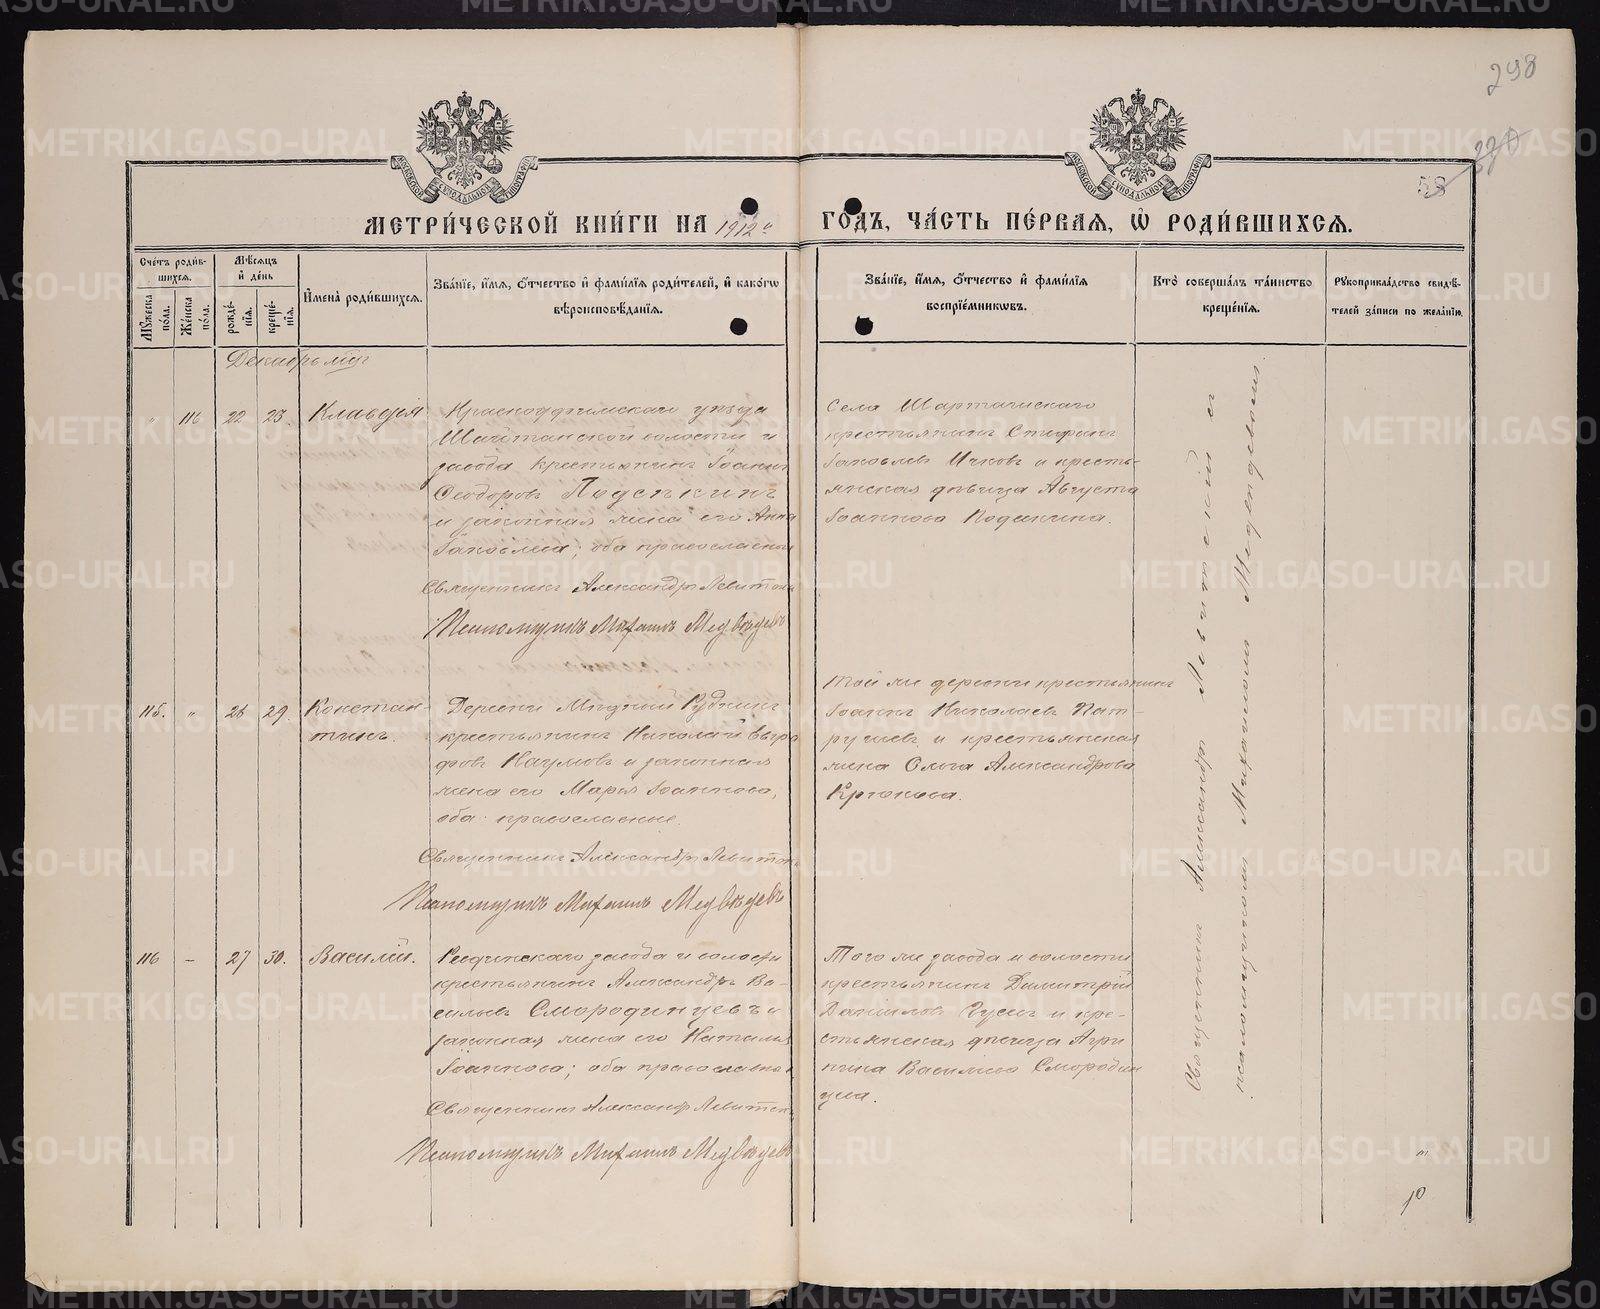 298
220
58
МЕТРИ́ЧЕСКОЙ КНИ́ГИ НА 1912 г ГО́ДЪ, ЧА́СТЬ ПЕ́РВАЯ, Ѽ РОДИ́ВШИХСЯ.
Сче́тъ роди́в-
шихся.
Му́жеска по́ла.
Же́нска по́ла.
Мѣ́сяцъ и де́нь
рожде́-
нія.
креще́-
нія.
Имена̀ роди́вшихся.
Зва́ніе, и́мя, о́тчество и фами́лія роди́телей, и како́гѡ
вѣроисповѣ́данія.
Зва́ніе, и́мя, о́тчество и фами́лія
воспріе́мникѡвъ.
Кто̀ соверша́лъ та́инство
креще́нія.
Рукоприкла́дство свидѣ́-
телей за́писи по жела́нію.
Декабрь мц
" 116 22 23. Клавдія
Красноуфимскаго уѣзда
Шайтанской волости и
завода крестьянинъ Іоаннъ
Ѳеодоровъ Подсѣкинъ
и законная жена его Анна
Іаковлева; оба православные
Священникъ Александръ Левитскій
Псаломщикъ Михаилъ Медвѣдевъ
Села Шарташскаго
крестьянинъ Стефанъ
Іаковлевъ Ичковъ и кресть-
янская дѣвица Августа
Іоаннова
115. " 28 29. Констан-
тинъ.
Деревни Мѣдный Рудникъ
крестьянинъ Николай Евгра
фовъ Наумовъ и законная
жена его Марья Іоаннова,
оба православные.
Священникъ Александръ Левитскій
Псаломщикъ Михаилъ Медвѣдевъ
Той же деревни крестьянинъ
Іоаннъ Николаевъ Пат-
рушевъ и крестьянская
жена Ольга Александрова
Крюкова.
116 - 27 30. Василій.
Ревдинскаго завода и волости
крестьянинъ Александръ Ва-
сильевъ Смородинцевъ и
законная жена его Наталья
Іоаннова; оба православные
Священникъ Александръ Левитскій
Псаломщикъ Михаилъ Медвѣдевъ
Того же завода и волости
крестьянинъ Димитрій
Даніиловъ и кре-
стьянская дѣвица Агри
пина Васильева Смородин
цева.
Священникъ Александръ Левитскій съ
псаломщикомъ Михаиломъ Медвѣдевымъ.
METRIKI.GASO-URAL.RU